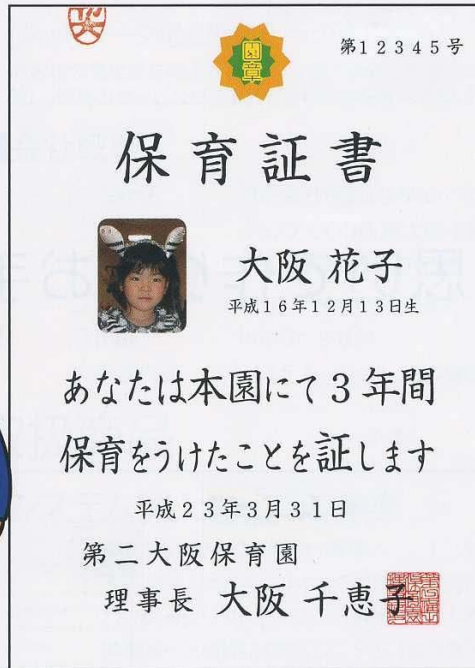 第12345号
園章
保育証書
大阪 花子
平成16年12月13日生
あなたは本園にて3年間
保育をうけたことを証します
平成23年3月31日
第二大阪保育園
理事長 大阪 千恵子